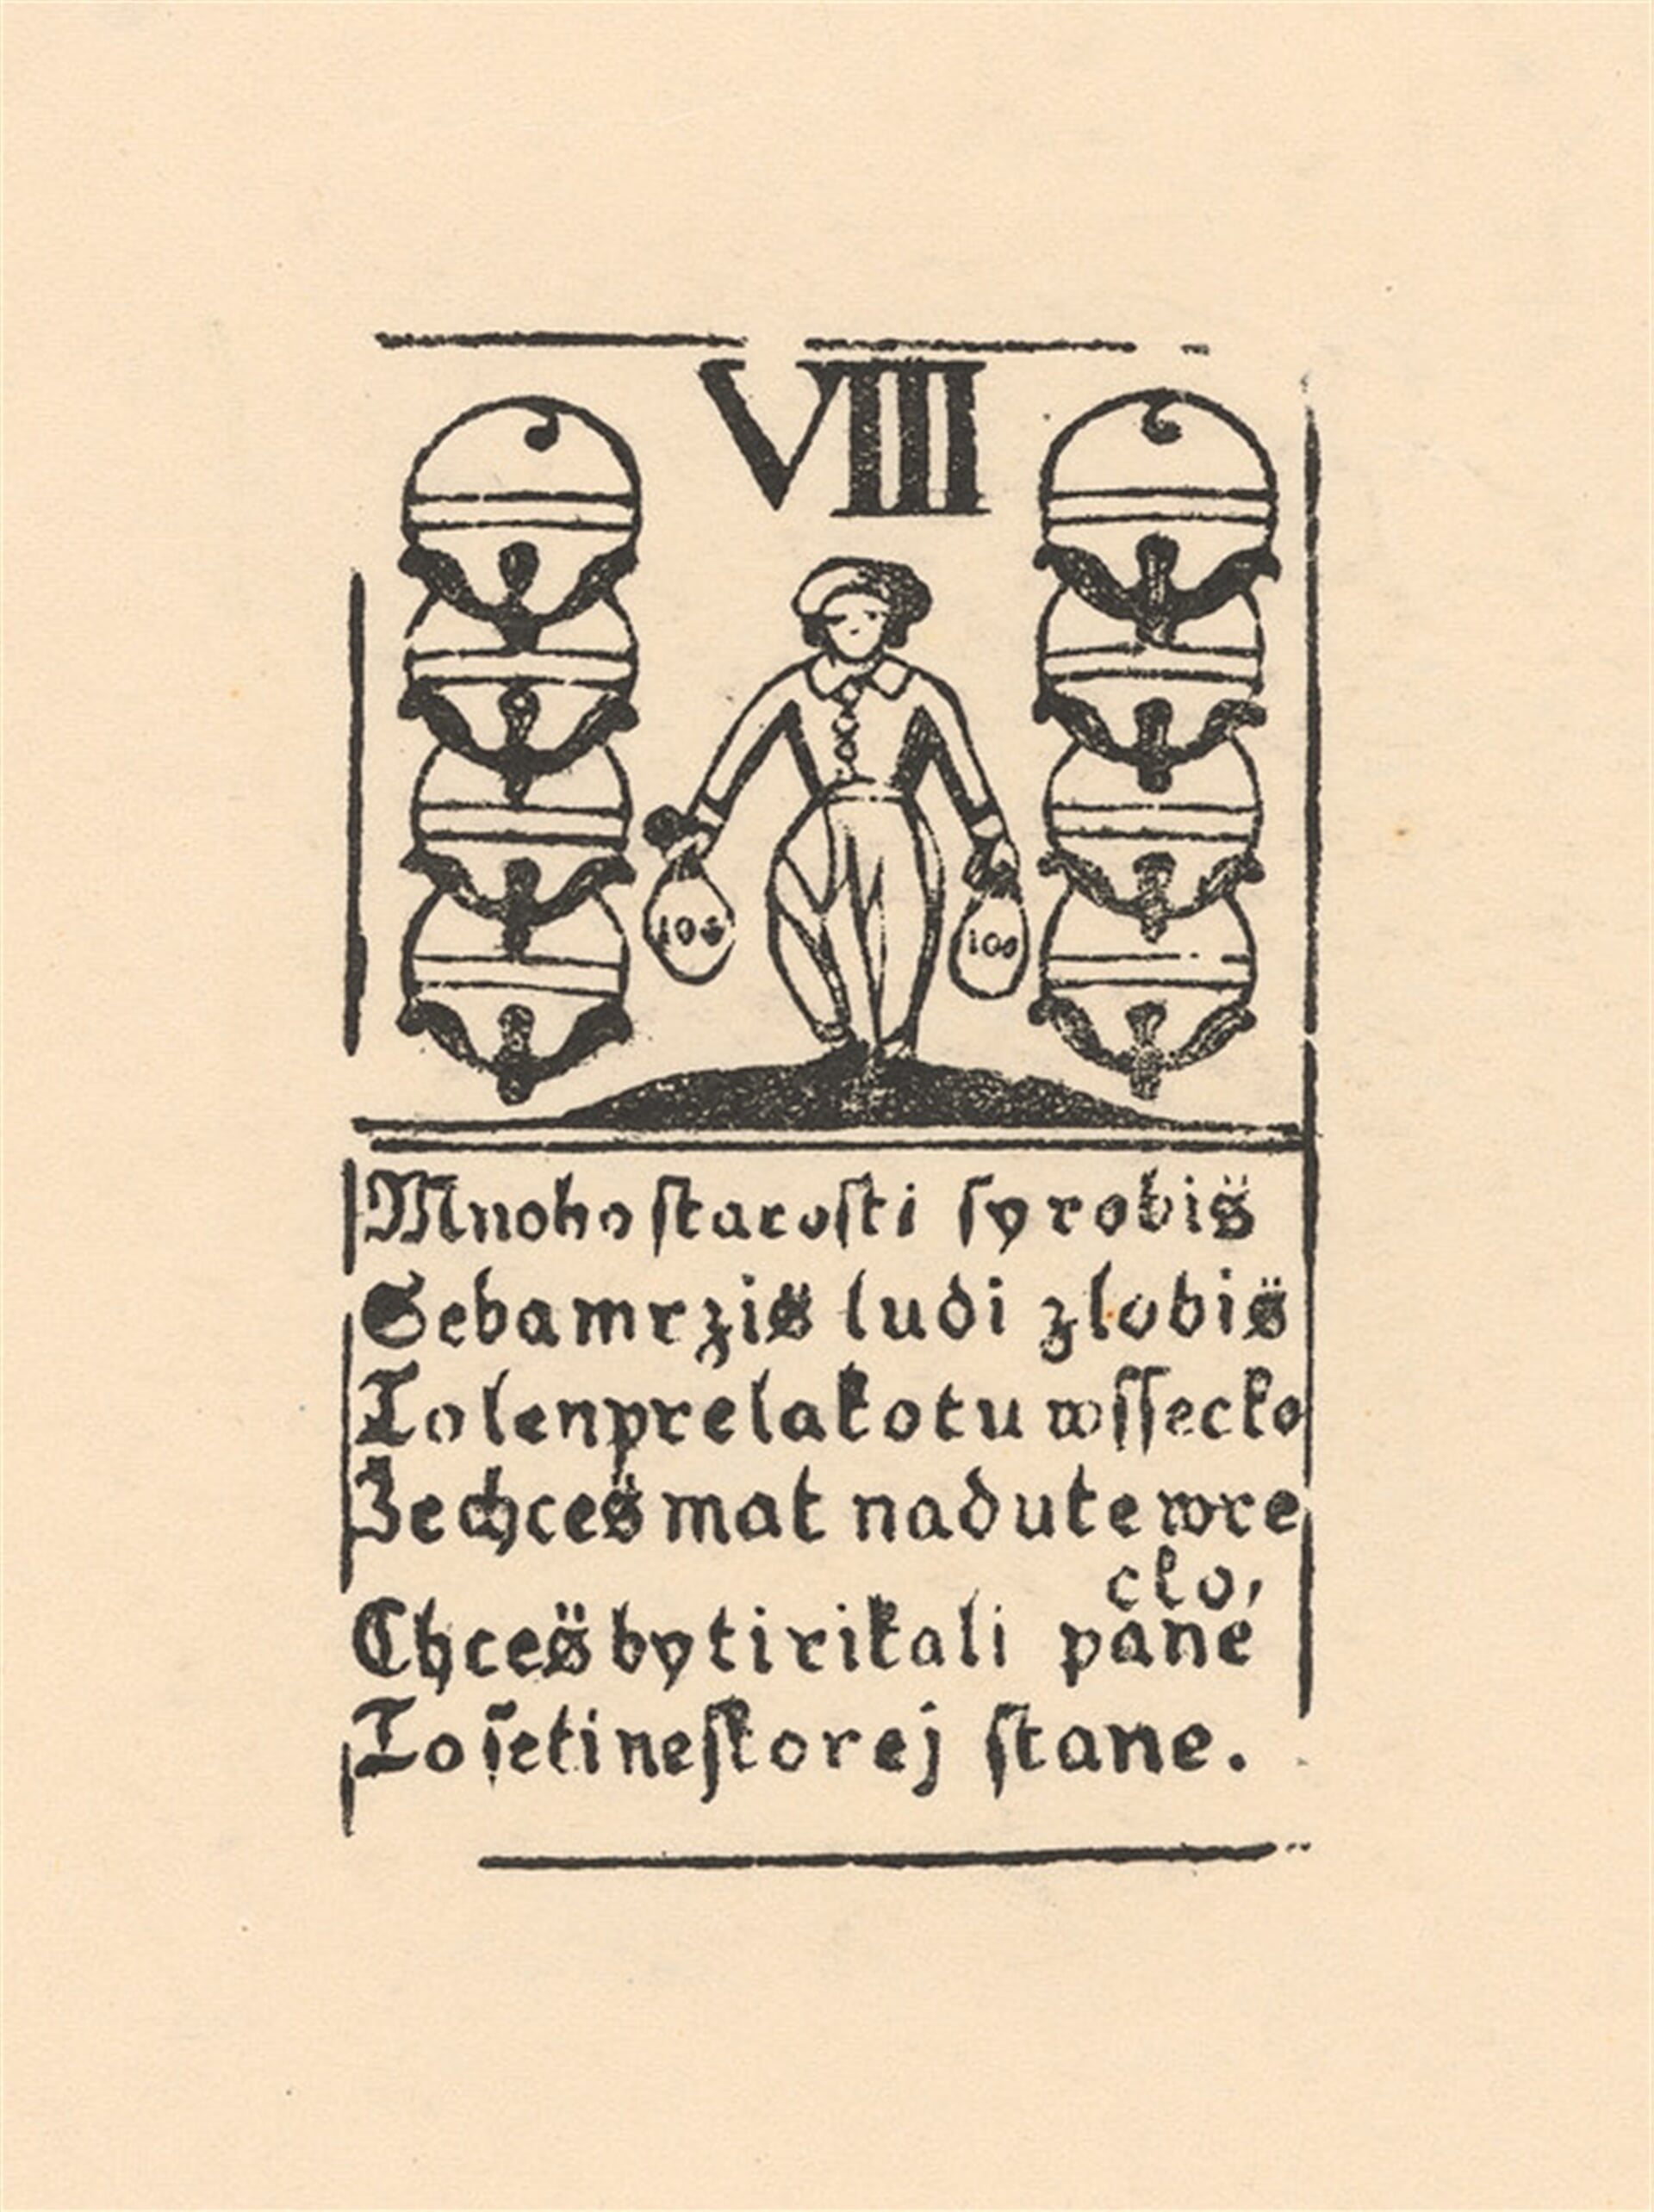 VIII
100 100
Mnoho starosti sy robis̈
Seba mrzis̈ ludi zlobis̈
To len pre lakotu wssecko
Ze chces̈ mat nadute wre
cko,
Chces̈ by ti rikali pane
To se ti neskorej stane.